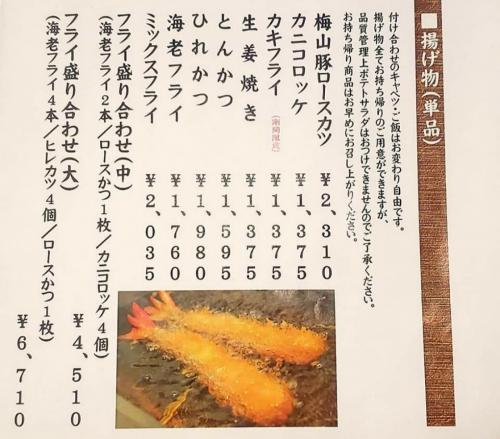 ■揚げ物(単品)
付け合わせのキャベツ・ご飯はお変わり自由です。
揚げ物全てお持ち帰りのご用意ができますが、
品質管理上ポテトサラダはおつけできませんのでご了承ください。
お持ち帰り商品はお早めにお召し上がりください。
梅山豚ロースカツ ¥2,310
カニコロッケ ¥1,375
カキフライ(期間限定) ¥1,375
生姜焼き ¥1,375
とんかつ ¥1,595
ひれかつ ¥1,980
海老フライ ¥1,760
ミックスフライ ¥2,035
フライ盛り合わせ(中)
(海老フライ2本/ロースかつ1枚/カニコロッケ4個) ¥4,510
フライ盛り合わせ(大)
(海老フライ4本/ヒレカツ4個/ロースかつ1枚) ¥6,710